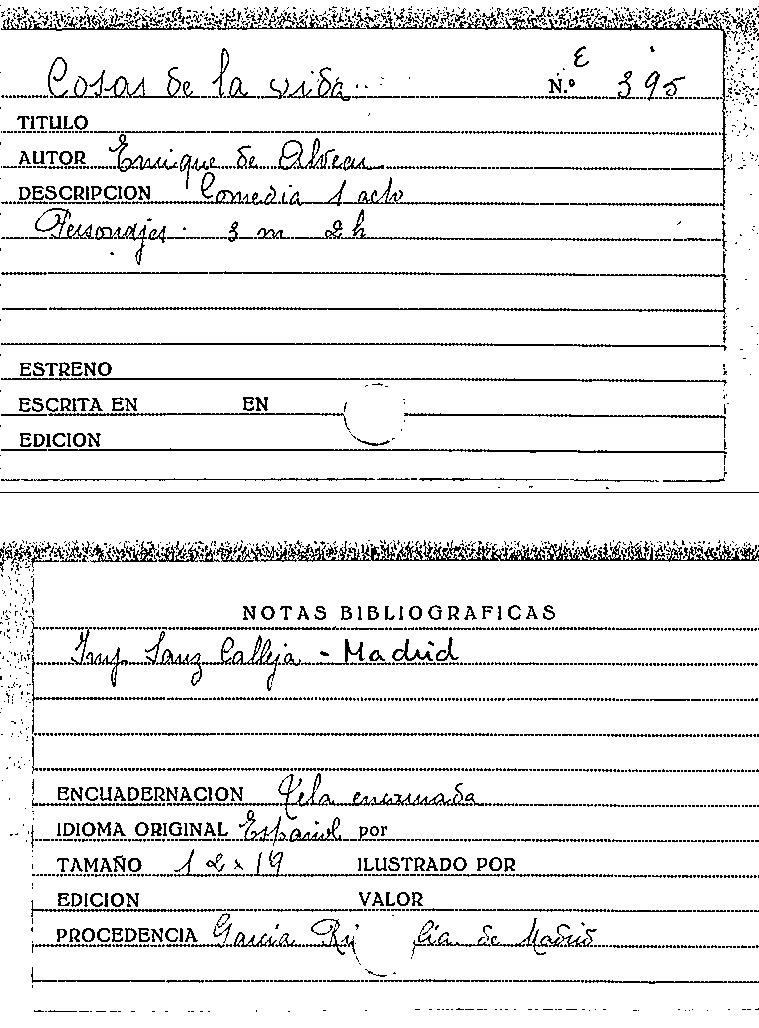 E
Cosas de la vida... N.º 395
TITULO
AUTOR Enrique de Alvear
DESCRIPCION Comedia 1 acto
Personajes. 3 m 2 h
ESTRENO
ESCRITA EN EN
EDICION
NOTAS BIBLIOGRAFICAS
Imp Sanz Calleja - Madrid
ENCUADERNACION Tela
IDIOMA ORIGINAL Español por
TAMAÑO 12 x 19 ILUSTRADO POR
EDICION VALOR
PROCEDENCIA Garcia de Madrid